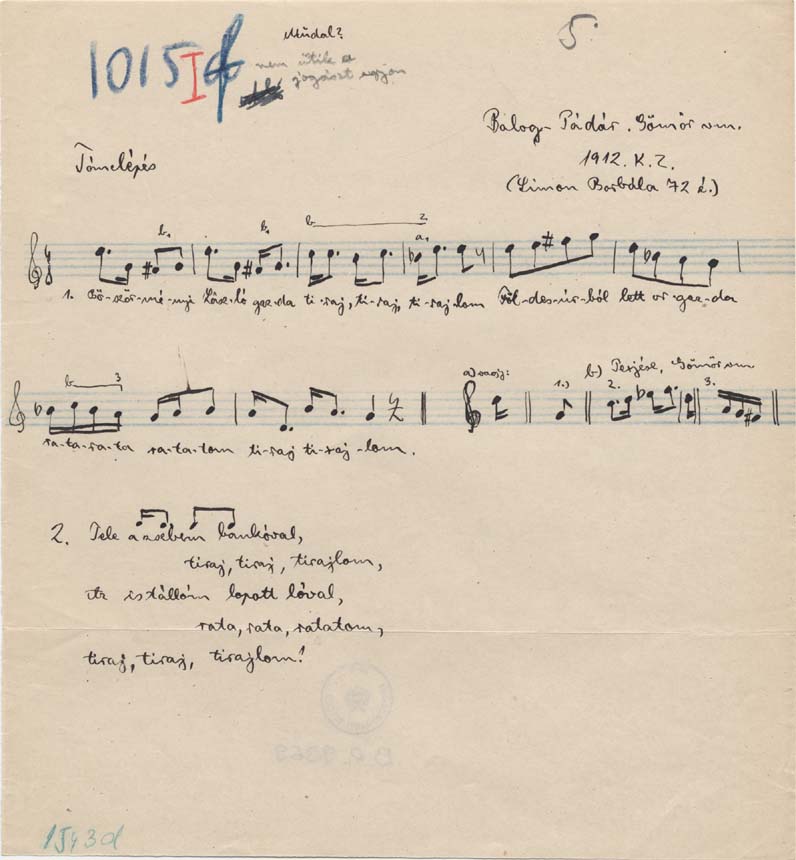 Műdal?
5.
1015 I
nem ütik a
Balog-Pádár. Gömör vm.
1912. K. Z.
Tömelépés
(Simon Borbála 72 é.)
b. b. b 2.
a.
1. Bö-ször-mé-nyi Lász-ló gaz-da ti-raj, ti-raj, ti-raj-lom Föl-des-úr-ból lett úr-gaz-da
b 3
a) vagy: 1.) b) Perjése, Gömör vm
2. 3.
ra-ta-ra-ta ra-ta-tom ti-raj ti-raj-lom.
2. Tele a zsebem bankóval,
tiraj, tiraj, tirajlom,
Az istállóm lopott lóval,
rata, rata, ratatom,
tiraj, tiraj, tirajlom!
B.R. 9369
1543d